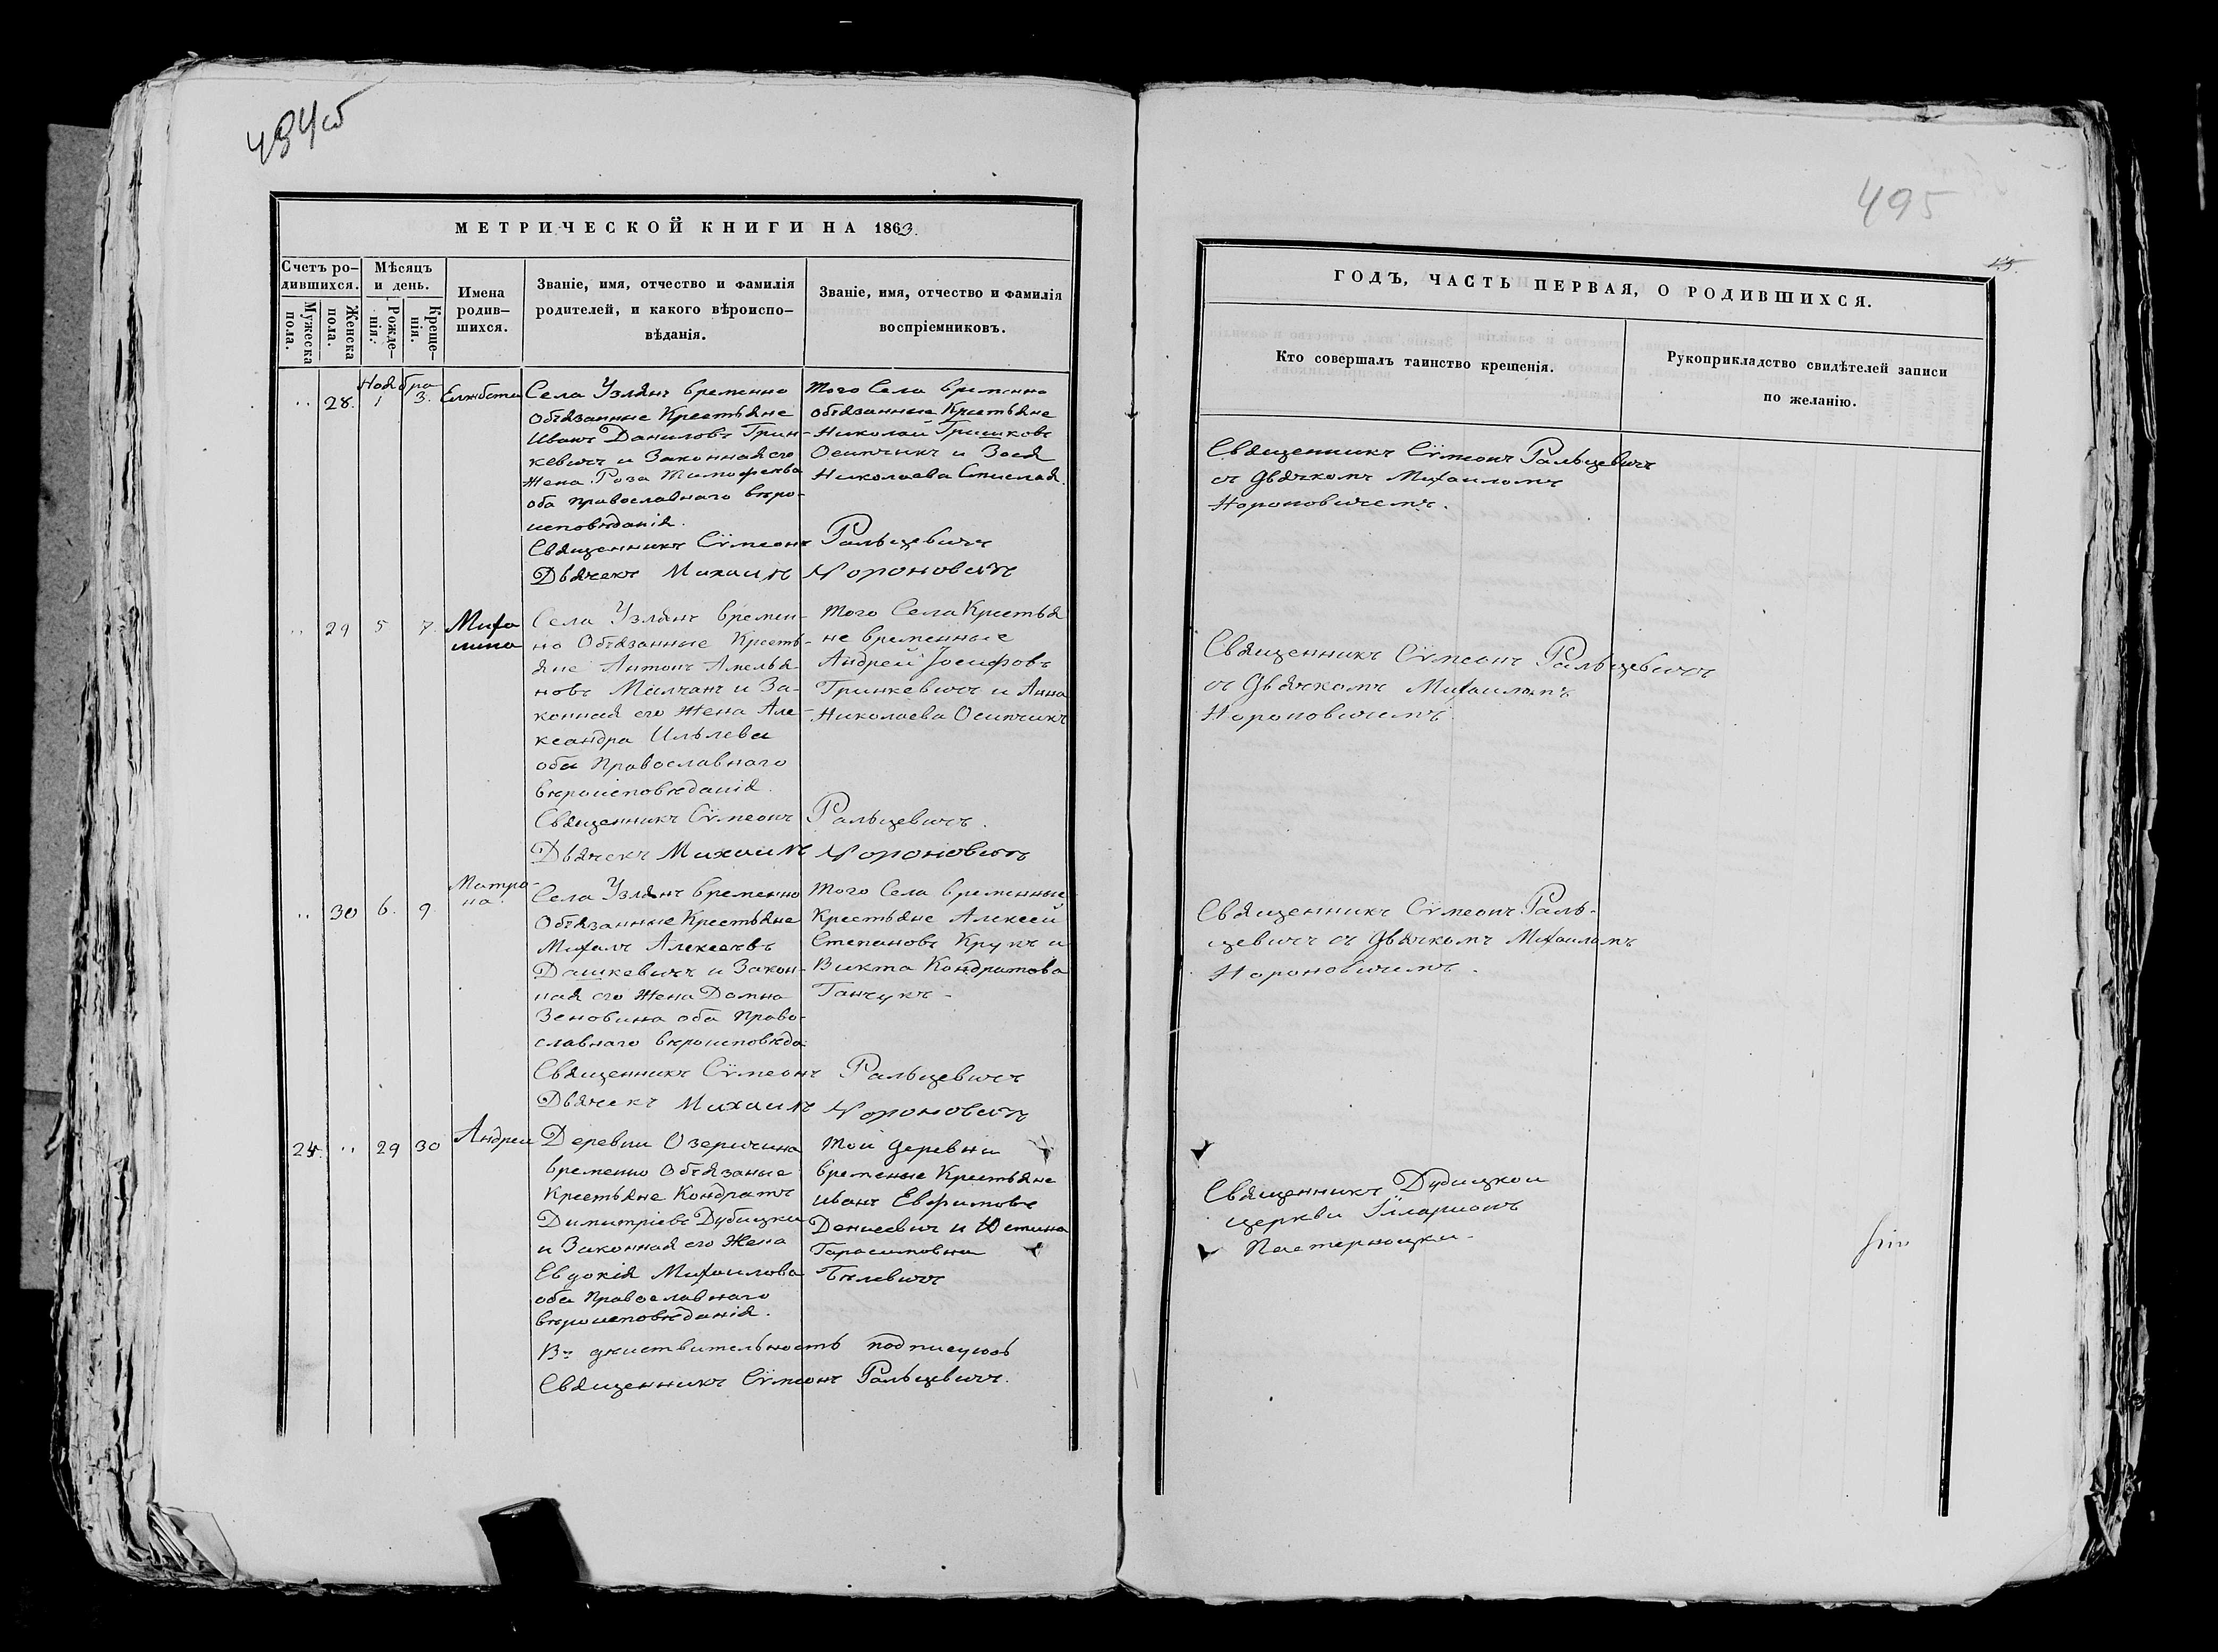 494об
495
МЕТРИЧЕСКОЙ КНИГИ НА 1863.
Счетъ ро-
дившихся.
Мѣсяцъ
и день.
Мужеска
пола.
Женска
пола.
Рожде-
нія.
Креще-
нія.
Имена
родив-
шихся.
Званіе, имя, отчество и фамилія
родителей, и какого вѣроиспо-
вѣданія.
Званіе, имя, отчество и фамилія
воспріемниковъ.
Ноября
" 28. 1 3.
Села Узлянъ временно
обязанные Крестьяне
Иванъ Даниловъ Грин-
кевичъ и Законная его
жена Роза Тимофеева
оба православнаго вѣро-
исповѣданія.
Того Села временно
обязанные Крестьяне
Николай Гришковъ
Осипчикъ и Зося
Николаева
Священникъ Сѵмеонъ Ральцевичъ
Дьячекъ Михаилъ Нороновичъ
" 29 5 7.
Миха
лина
Села Узлянъ времен-
но Обязанные Кресть-
яне Антонъ Амелья-
новъ Милчанъ и За-
конная его Жена Але-
ксандра Ильлева
оба Православнаго
вѣроисповѣданія.
Того Села Крестья
не временные
Андрей Іосифовъ
Гринкевичъ и Анна
Николаева Осипчикъ
Священникъ Сѵмеонъ Ральцевичъ.
Дьячекъ Михаилъ Нороновичъ
" 30 6. 9.
Матро-
на.
Села Узлянъ временно
Обязанные Крестьяне
Михалъ Алексеевъ
Дашкевичъ и Закон-
ная его Жена Домна
Зеновина оба Право-
славнаго вѣроисповѣда
Того Села временные
Крестьяне Алексей
Степановъ Крукъ и
Викта Кондратова
Ганчукъ -
Священникъ Сѵмеонъ Ральцевичъ
Дьячекъ Михаилъ Нороновичъ
24. " 29 30
Андрей
Деревни Озеричина
временно Обязаные
Крестьяне Кондратъ
Димитріевъ Дубицки
и Законная его Жена
Евдокія Михаилова
оба Православнаго
вѣроисповѣданія.
Той деревни
временые Крестьяне
Иванъ Евфимовъ
Денисевич и Юстина
Гарасимовна
Въ дѣиствительность подписуюсь
Священникъ Сѵмеонъ Ральцевичъ.
ГОДЪ, ЧАСТЬ ПЕРВАЯ, О РОДИВШИХСЯ.
Кто совершалъ таинство крещенія.
Рукоприкладство свидѣтелей записи
по желанію.
Священникъ Сѵмеонъ Ральцевичъ
съ дьячкомъ Михаиломъ
Нороновичемъ.
Священникъ Сѵмеонъ Ральцевичъ
съ дьячкомъ Михаиломъ
Нороновичемъ
Священникъ Сѵмеонъ Раль-
цевичъ съ дьячкомъ Михаиломъ
Нороновичемъ.
Священникъ Дубицкои
церкви Илларионъ
Пастернацки-